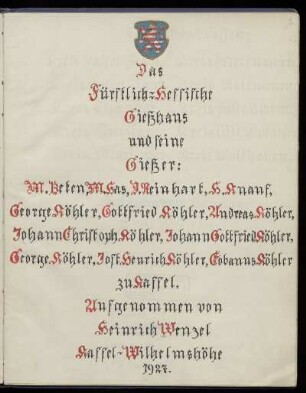 Das
Fürstlich=Hessische
Gießhaus
und seine
Gießer:
M. Beken, M. Has, J. Reinhart, H. Knauf,
George Köhler, Gottfried Köhler, Andreas Köhler,
Johann Christoph Köhler, Johann Gottfried Köhler,
George Köhler, Jost Henrich Köhler, Eobanus Köhler
zu Kassel.
Aufgenommen von
Heinrich Wenzel
Kassel-Wilhelmshöhe
1927.